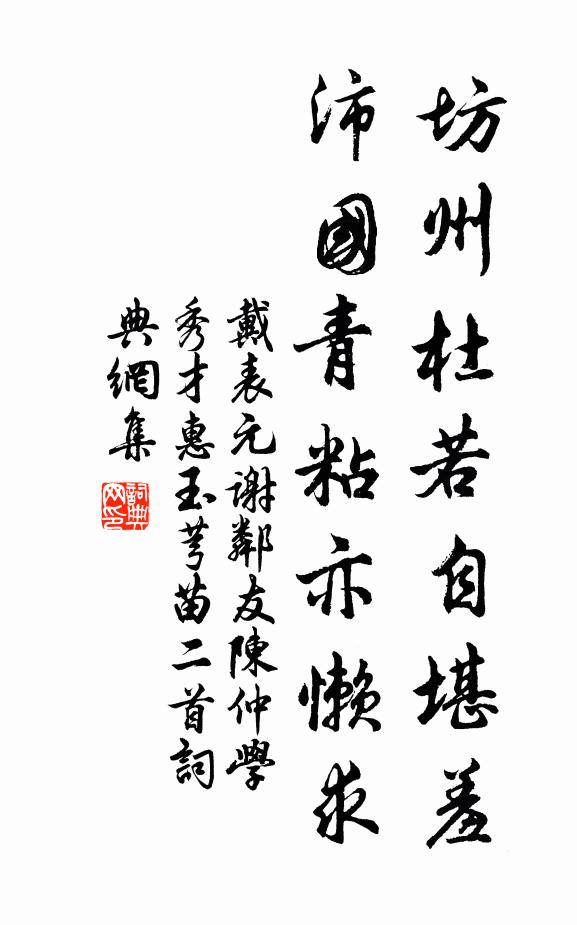 坊州杜若自堪羞
沛國青粘亦懶求
戴表元謝鄰友陳仲學
秀才惠玉芎苗二首詞
典網集
詞典網印